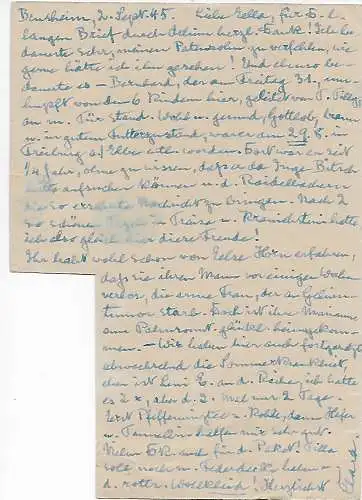 Bensheim, 2. Sept. 45. Liebe Ella, für D. l.
langen Brief durch Achim herzl. Dank! Ich be-
dauerte sehr, meinen Patensohn zu verfehlen, wie
gerne hätte ich ihn gesehen! Und ebenso be-
dauerte es - Bernhard, der am Freitag 31., um-
hüpft von den 6 Kindern hier, geleitet von T.
an m. Tür stand. Wohl u. gesund, Gottlob, braun
u. in gutem Futterzustand, war er am 29. 8. in
a/ Elbe entl. worden. Dort war er seit
1/4 Jahr, ohne zu wissen, dass er da Inge
hätte aufsuchen können u. d.
die so ersehnte Nachricht zu bringen. Nach 2
so schönen in Traisa u. Kranichstein hatte
ich also gleich hier diese Freude!
Ihr habt wohl schon von Else Horn erfahren,
daß sie ihren Mann vor einigen Wochen
verlor, die arme Frau, der an
tumor starb. Doch ist ihre Marianne
aus glückl. heimgekom-
men. - Wir haben hier auch fortgesetzt
abwechselnd die Sommerkrankheit,
eben ist E. an d. Reihe, ich hatte
es 2 x, aber d. 2. Mal nur 2 Tage.
Jetzt Pfefferminztee u. Kohle, dann Hefe
u. helfen mir sehr gut.
Vielen Dk. auch für d. Paket!
soll noch m. haben
d. rote Wollkleid! Herzlichst